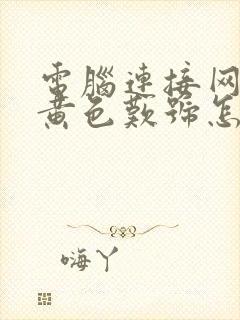 電腦連接网
黃色歎號怎
嗨丫